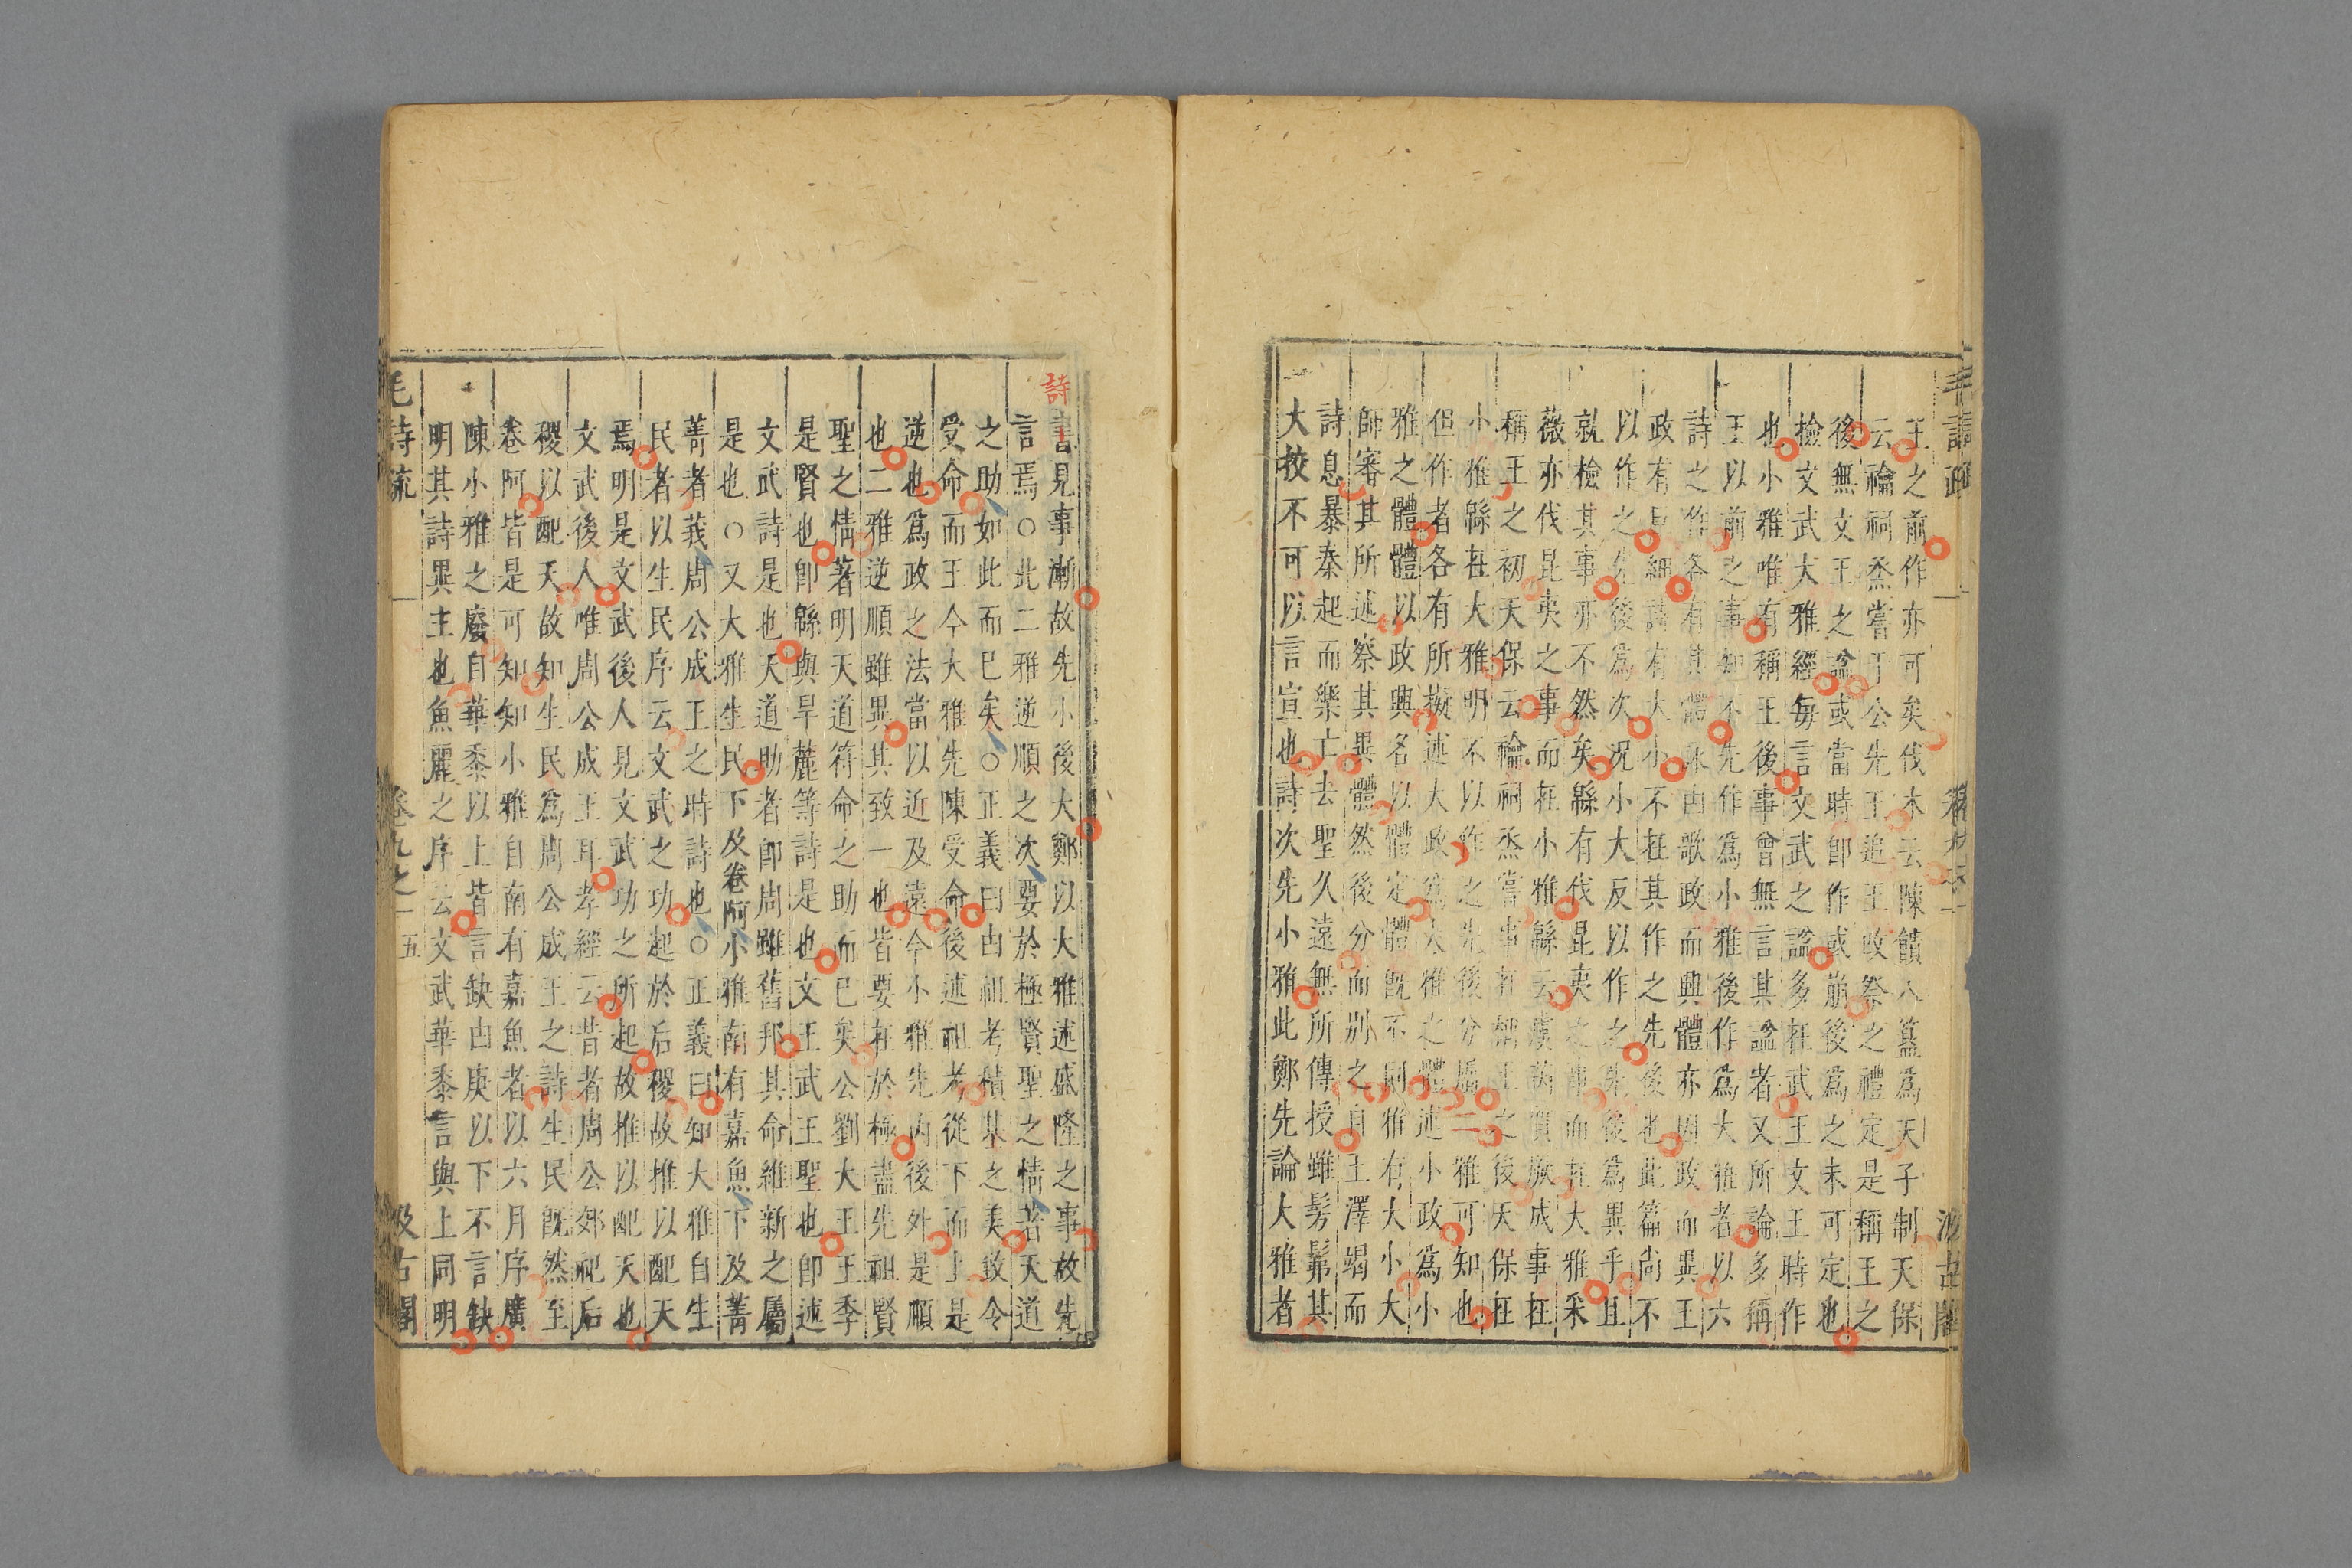 毛詩疏
汲古閣
王之前作亦可矣伐木云陳饋八簋為天子制天保
云禴祠烝嘗于公先王追王改祭之禮定是稱王之
後無文王之諡或當時卽作或崩後為之未可定也
檢文武大雅經每言文武之諡多在武王文王時作
也小雅唯有稱王後事曾無言其諡者又所論多稱
王以前之事知不先作為小雅後作為大雅者以六
詩之作各有其體詠由歌政而興體亦因政而異王
政有巨細詩有大小不在其作之先後也此篇尚不
以作之先後為次況小大反以作之先後為異乎且
就檢其事亦不然矣緜有伐昆夷之事而在大雅采
薇亦伐昆夷之事而在小雅緜云虞芮質厥成事在
稱王之初天保云禴祠烝嘗事在稱王之後天保在
小雅緜在大雅明不以作之先後分屬二雅可知也
但作者各有所擬述大政為大雅之體述小政為小
雅之體體以政興名以體定體既不同雅有大小大
師審其所述察其異體然後分而別之自王澤竭而
詩息暴秦起而樂亡去聖久遠無所傳授雖髣髴其
大校不可以言宣也詩次先小雅此鄭先論大雅者
詩書見事漸故先小後大鄭以大雅述盛隆之事故先
言焉○此二雅逆順之次要於極賢聖之情著天道
之助如此而已矣○正義曰由祖考積基之美致令
受命而王今大雅先陳受命後述祖考從下而上是
逆也為政之法當以近及遠今小雅先內後外是順
也二雅逆順雖異其致一也皆要在於極盡先祖賢
聖之情著明天道符命之助而已矣公劉大王王季
是賢也卽緜與旱麓等詩是也文王武王聖也卽述
文武詩是也天道助者卽周雖舊邦其命維新之屬
是也○又大雅生民下及卷阿小雅南有嘉魚下及菁
菁者莪周公成王之時詩也○正義曰知大雅自生
民者以生民序云文武之功起於后稷故推以配天
焉明是文武後人見文武功之所起故推以配天也
文武後人唯周公成王耳孝經云昔者周公郊祀后
稷以配天故知生民為周公成王之詩生民既然至
卷阿皆是可知知小雅自南有嘉魚者以六月序廣
陳小雅之廢自華黍以上皆言缺由庚以下不言缺
明其詩異主也魚麗之序云文武華黍言與上同明
毛詩疏
卷九之一
五
汲古閣